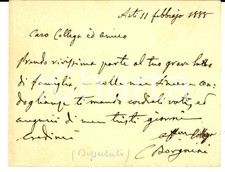 Asti 11 febbrajo 1888
Caro Collega ed amico
Prendo vivissima parte al tuo grave lutto
di famiglia, e colle mie sincere con-
doglianze ti mando cordiali voti, ed
augurio di men tristi giorni
Credimi
aff.mo Collega
(Deputato) Borgnini